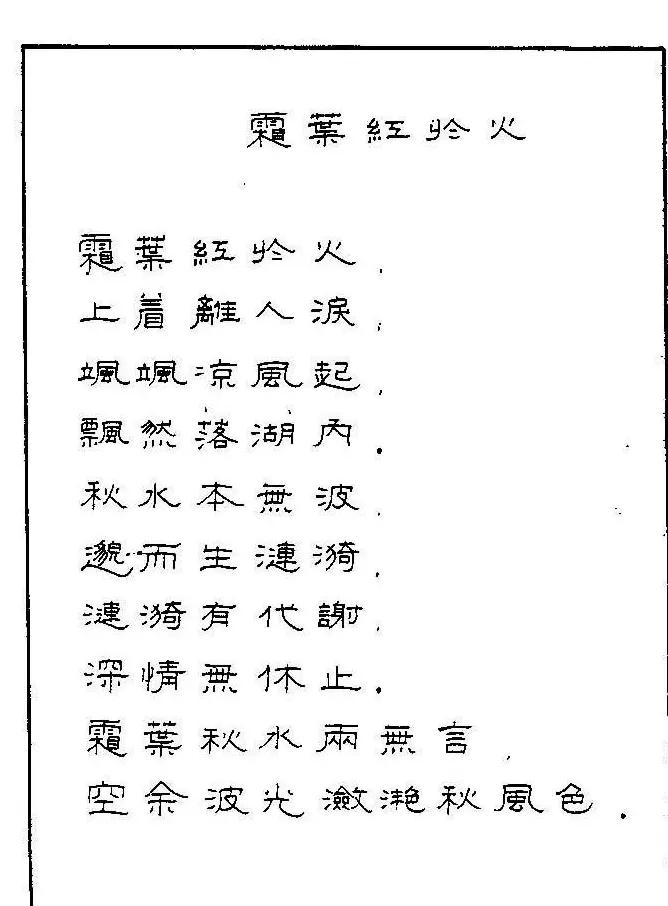 霜葉紅於火
霜葉紅於火,
上着離人淚,
颯颯凉風起,
飄然落湖内.
秋水本無波,
邈而生漣漪,
漣漪有代謝,
深情無休止.
霜葉秋水兩無言,
空余波光瀲滟秋風色.